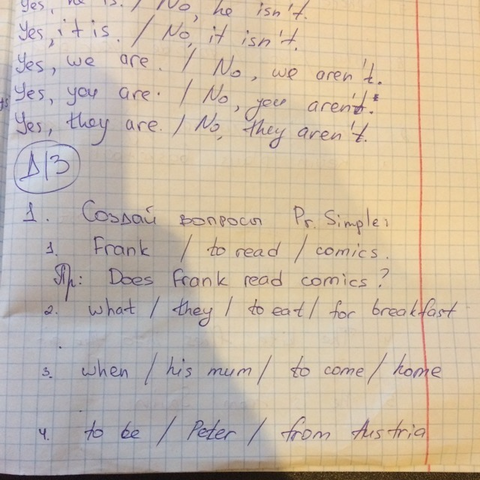 Yes, he is. / No, he isn't.
Yes, it is. / No, it isn't.
Yes, we are. / No, we aren't.
Yes, you are. / No, you aren't.
Yes, they are. / No, they aren't.
Д/З
1. Создай вопросы Pr. Simple:
1. Frank / to read / comics.
Пр: Does Frank read comics?
2. what / they / to eat / for breakfast
3. when / his mum / to come / home
4. to be / Peter / from Austria